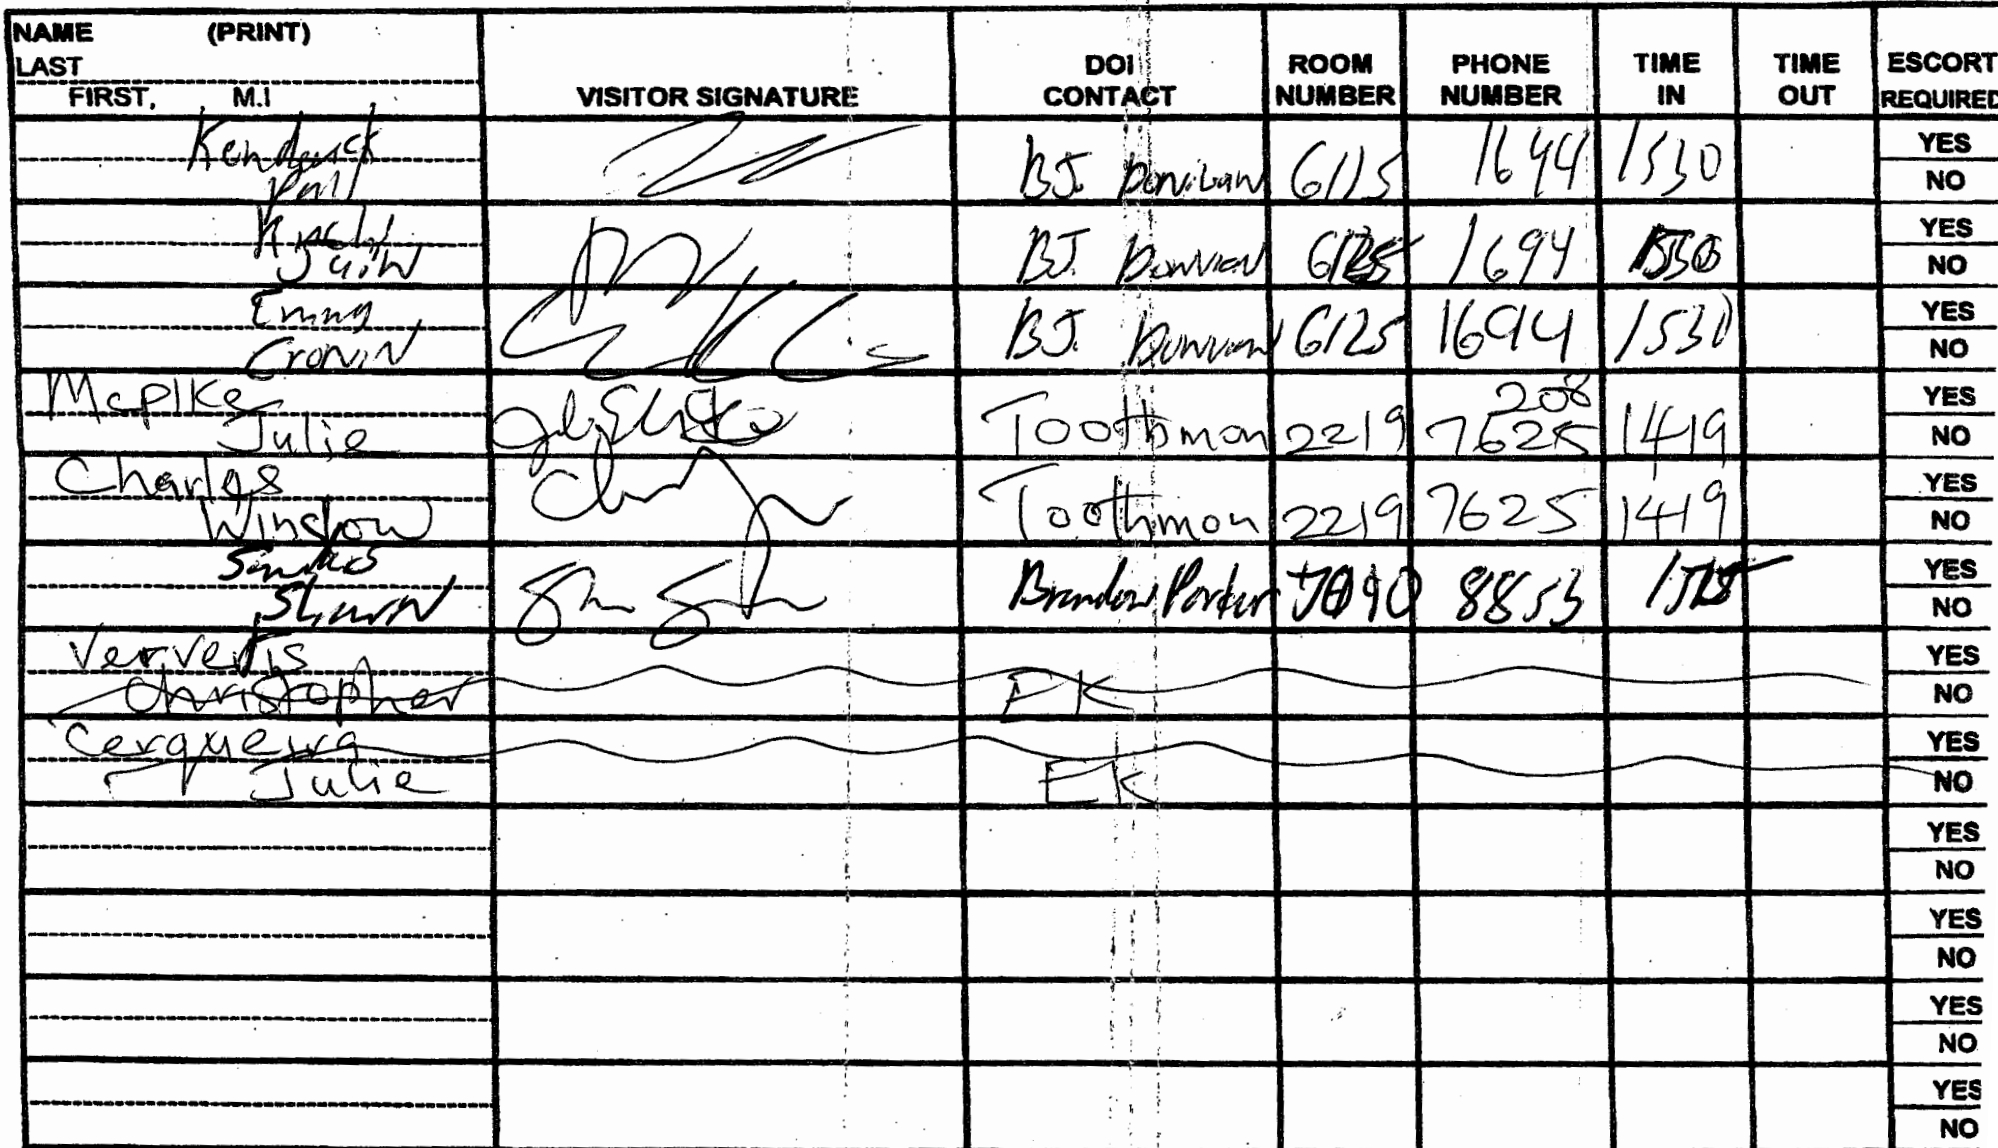 NAME (PRINT)
LAST
FIRST, M.I
VISITOR SIGNATURE
DOI CONTACT
ROOM NUMBER
PHONE NUMBER
TIME IN
TIME OUT
ESCORT REQUIRED
Kendrick
Paul
BJ. 6115 1644 1530
YES
NO
BJ. 6125 1694 1530
YES
NO
Emma
Cronin
BJ. 6125 1694 1530
YES
NO
McPike
Julie
Toothman 2219 208 7625 1419
YES
NO
Charles
Winslow
Toothman 2219 7625 1419
YES
NO
Brandon Porter 8853
YES
NO
Ververis
Christopher
EK
YES
NO
Cerqueira
Julie
EK
YES
NO
YES
NO
YES
NO
YES
NO
YES
NO